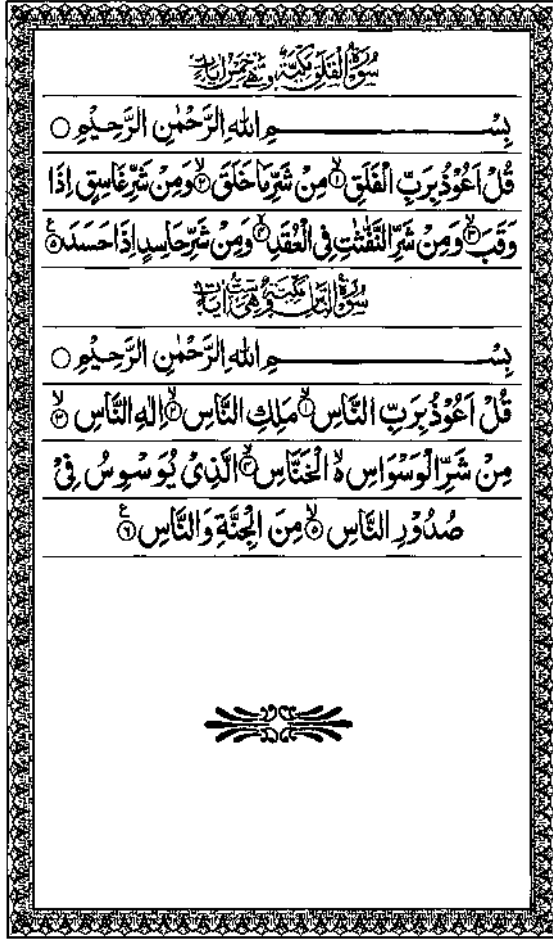 سُوْرَةُ الْفَلَقِ مَكِّيَّةٌ وَّهِيَ خَمْسُ اٰيَاتٍ
بِسْــــــــــــــــمِ اللهِ الرَّحْمٰنِ الرَّحِيْمِ ○
قُلْ اَعُوْذُ بِرَبِّ الْفَلَقِۙ۝۱ مِنْ شَرِّ مَا خَلَقَۙ۝۲ وَمِنْ شَرِّ غَاسِقٍ اِذَا
وَقَبَۙ۝۳ وَمِنْ شَرِّ النَّفّٰثٰتِ فِی الْعُقَدِۙ۝۴ وَمِنْ شَرِّ حَاسِدٍ اِذَا حَسَدَ۝۵ۧ
سُوْرَةُ النَّاسِ مَكِّيَّةٌ وَّهِيَ سِتُّ اٰيَاتٍ
بِسْــــــــــــــــمِ اللهِ الرَّحْمٰنِ الرَّحِيْمِ ○
قُلْ اَعُوْذُ بِرَبِّ النَّاسِۙ۝۱ مَلِكِ النَّاسِۙ۝۲ اِلٰهِ النَّاسِۙ۝۳
مِنْ شَرِّ الْوَسْوَاسِ ۙ۬ الْخَنَّاسِۙ۝۴ الَّذِیْ یُوَسْوِسُ فِیْ
صُدُوْرِ النَّاسِۙ۝۵ مِنَ الْجِنَّةِ وَالنَّاسِ۝۶ۧ